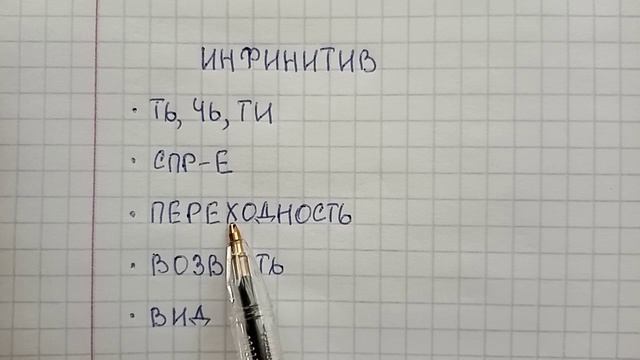 ИНФИНИТИВ
· ТЬ, ЧЬ, ТИ
· СПР-Е
· ПЕРЕХОДНОСТЬ
· ВИД